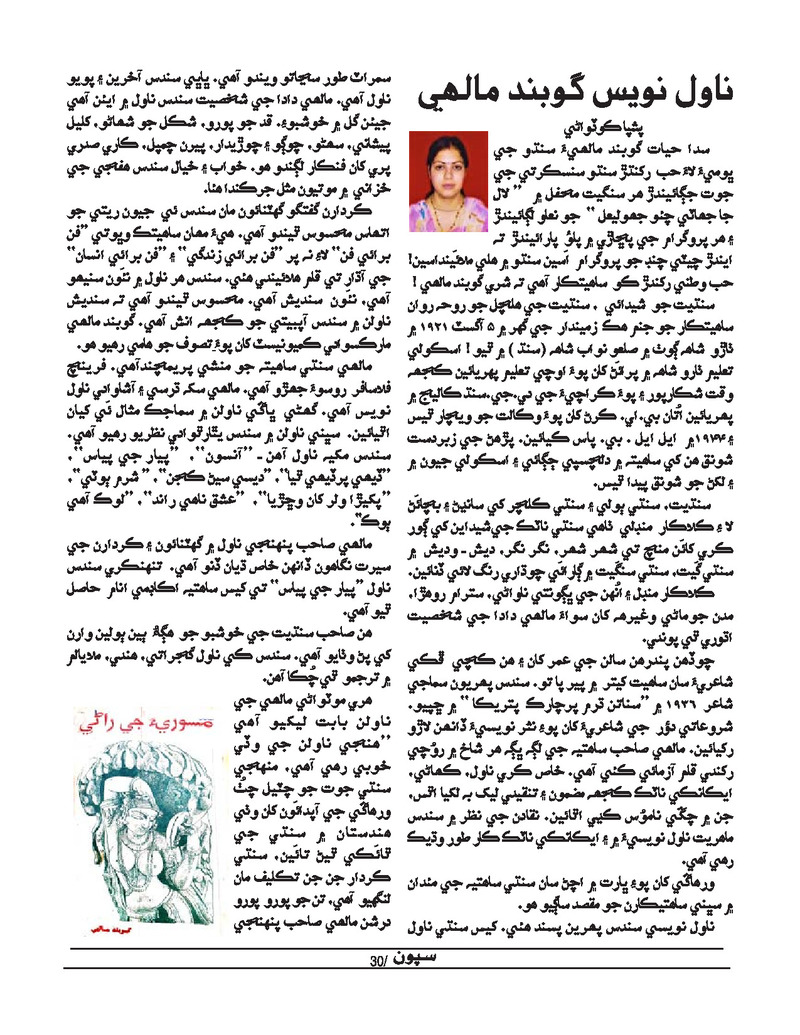 ناول نويس گوبند مالهي
پشپا ڪوٽواڻي
سدا حيات گوبند مالهيءَ سنڌو جي
ڀوميءَ لاءِ حب رکندڙ سنڌو سنسڪرتي جي
جوت جڳائيندڙ هر سنگيت محفل ۾ ” لال
جا جهاٽي چئو جهوليلعل “ جو نعرو لڳائيندڙ
۽ هر پروگرام جي پڇاڙي ۾ پلؤ پارائيندڙ ته
ايندڙ چيٽي چنڊ جو پروگرام اَسين سنڌو ۾ هلي ملائينداسين!
حب وطني رکندڙ ڪو ساهتيڪار آهي ته شري گوبند مالهي !
سنڌيت جو شيدائي ، سنڌيت جي هلچل جو روحہ روان
ساهتيڪار جو جنم هڪ زميندار جي گهر ۾ ۵ آگسٽ ۱۹۲۱ ۾
ٺاڙو شاهه ڳوٺ ۾ ضلعو نواب شاهه (سنڌ ) ۾ ٿيو ! اسڪولي
تعليم ٺارو شاهه ۾ پرائڻ کان پوءِ اوچي تعليم پهريائين ڪجهه
وقت شڪارپور ۽ پوءِ ڪراچيءَ جي ڊي.جي.سنڌ ڪاليج ۾
پهريائين اُتان بي.اي. ڪرڻ کان پوءِ وڪالت جو ويچار ٿيس
۽ ۱۹۴۴۾ ايل ايل . بي. پاس ڪيائين. پڙهڻ جي زبردست
شونق هن کي ساهتيہ ۾ دلچسپي جڳائي ۽ اسڪولي جيون ۾
۽ لکڻ جو شونق پيدا ٿيس.
سنڌيت، سنڌي ٻولي ۽ سنڌي ڪلچر کي سانڍڻ ۽ بچائڻ
لاءِ ڪلاڪار منڊلي ٺاهي سنڌي ناٽڪ جي شيداين کي گور
ڪري کائن منچ تي شهر شهر، نگر نگر، ديش - وديش ۾
سنڌي گيت، سنڌي سنگيت ۾ ڳارائي چوڌاري رنگ لائي ڏنائين.
ڪلاڪار منڊل ۽ اُنهن جي ڀڳونتي ناواڻي، سترام روهڙا،
مدن جوماڻي وغيرهه کان سواءِ مالهي دادا جي شخصيت
اڌوري ٿي پوندي.
چوڏهن پندرهن سالن جي عمر کان ۽ هن ڪچي ڦڪي
شاعريءَ سان ساهيت کيتر ۾ پير پا تو. سندس پهريون سماجي
شاعر ۱۹۳۶ ۾ ”سناتن ڌرم پرچارڪ پتريڪا “ ۾ ڇپيو.
شروعاتي دؤر جي شاعريءَ کان پوءِ نثر نويسيءَ ڏانهن لاڙو
رکيائين. مالهي صاحب ساهتيہ جي لڳ ڀڳ هر شاخ ۾ روُچي
رکندي قلم آزمائي ڪئي آهي. خاص ڪري ناول، ڪهاڻي،
ايڪانڪي ناٽڪ ڪجهہ مضمون ۽ تنقيدي ليک بہ لکيا اٿس.
جن ۾ چڱي نامؤس ڪيي اٿائين. نقادن جي نظر ۾ سندس
ماهريت ناول نويسيءَ ۾ ۽ ايڪانڪي ناٽڪ ڪار طور وڌيڪ
رهي آهي.
ورهاڱي کان پوءِ ڀارت ۾ اچڻ سان سنڌي ساهتيہ جي مئدان
۾ سڀني ساهتيڪارن جو مقصد ساڳيو هو.
ناول نويسي سندس پهرين پسند هئي. کيس سنڌي ناول
سمراٽ طور سڃاتو ويندو آهي. ڀاڀي سندس آخرين ۽ پويو
ناول آهي. مالهي دادا جي شخصيت سندس ناول ۾ ايئن آهي
جيئن گل ۾ خوشبوءِ. قد جو پورو، شڪل جو شھاڻو، کليل
پيشاني، سھڻو، چوڳو ۽ چوڙيدار، پيرن چمپل، کاري صدري
پري کان فنڪار لڳندو هو. خواب ۽ خيال سندس هنجي جي
خزاني ۾ موتيون مثل جرڪندا هئا.
ڪردارن گفتگو گهٽنائون مان سندس ئي جيون ريتي جو
اتهاس محسوس ٿيندو آهي. هيءُ مهان ساهتيڪ ويو تي ”فن
برائي فن“ لاءِ نہ پر ”فن برائي زندگي“ ۽ ”فن برائي انسان“
جي آڌار تي قلم هلائيندي هئي. سندس هر ناول ۾ نئون سنيهو
آهي، نئون سنديش آهي. محسوس ٿيندو آهي تہ سنديش
ناولن ۾ سندس آپبيتي جو ڪجهہ انش آهي. گوبند مالهي
مارڪسوائي ڪميونيسٽ کان پوءِ تصوف جو حامي رهيو هو.
مالهي سنڌي ساهتيہ جو منشي پريمچند آهي. فرينچ
فلاسافر روسوءَ جهڙو آهي. مالهي سکہ ترسي ۽ آشاواني ناول
نويس آهي. گهڻي ڀاڱي ناولن ۾ سماجڪ مثال ئي کيان
اٿيائين. سڀني ناولن ۾ سندس يٿارٿواني نظريو رهيو آهي.
سندس مکيہ ناول آهن ـ ”آنسون“، ”پيار جي پياس“،
”ڏيهي پرڏيهي ٿيا“، ”ديسي سيڻ ڪجن“، ”شرم ٻوٽي“،
”پکيڙا ولر کان وڇڙيا“، ”عشق ناهي راند“، ”لوڪ آهي
ٻوڪ“.
مالهي صاحب پنهنجي ناول ۾ گهٽنائون ۽ ڪردارن جي
سيرت نگاهون ڏانهن خاص ڌيان ڏنو آهي. تنهنڪري سندس
ناول ”پيار جي پياس“ تي کيس ساهتيہ اڪاڊمي انام حاصل
ٿيو آهي.
هن صاحب سنڌيت جي خوشبو جو هڳاءُ ٻين ٻولين وارن
کي پڻ وٺايو آهي. سندس ڪي ناول گجراتي، هندي، ملايالم
۾ ترجمو ٿي چُڪا آهن.
هري موٽواڻي مالهي جي
ناولن بابت ليکيو آهي
”هنجي ناولن جي وڏي
خوبي رهي آهي، منهجي
سنڌي جوت جو چٽيل چٽُ
ورهاڱي جي آپدائون کان وٺي
هندستان ۾ سنڌي جي
ٿانڪي ٿيڻ تائين، سنڌي
ڪردار جن جن تڪليف مان
لنگهيو آهي، تن جو پورو پورو
درشن مالهي صاحب پنهنجي
منسوريءَ جي راڻي
گوبند مالهي
سپون /30